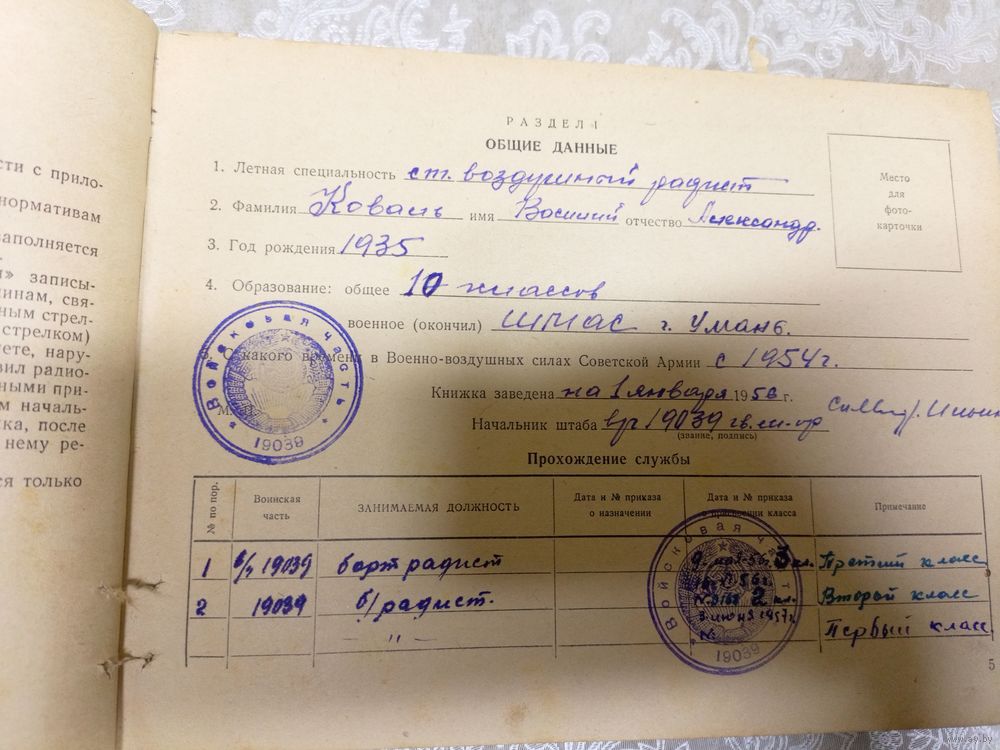 сти с прило-
нормативам
заполняется
и» записы-
чинам, свя-
ным стрел-
стрелком)
ете, нару-
вил радио-
ными при-
м началь-
ка, после
нему ре-
ся только
РАЗДЕЛ I
ОБЩИЕ ДАННЫЕ
1. Летная специальность ст. воздушный радист
2. Фамилия Коваль имя Василий отчество Александр.
3. Год рождения 1935
4. Образование: общее 10 классов
военное (окончил) ШМАС г. Умань.
С какого времени в Военно-воздушных силах Советской Армии с 1954 г.
Книжка заведена на 1 января 1956 г.
Начальник штаба в/ч 19039 гв. м-р
(звание, подпись)
М.
Место
для
фото-
карточки
Войсковая часть
19039
Прохождение службы
№ по пор.
Воинская
часть
ЗАНИМАЕМАЯ ДОЛЖНОСТЬ
Дата и № приказа
о назначении
Дата и № приказа
о присвоении класса
Примечание
1 в/ч 19039 борт радист 3 кл. Третий класс
2 19039 б/радист. 2 кл. Второй класс
— " — 3 июня 1957 г. Первый класс
№
Войсковая част
19039
5
www.ay.by